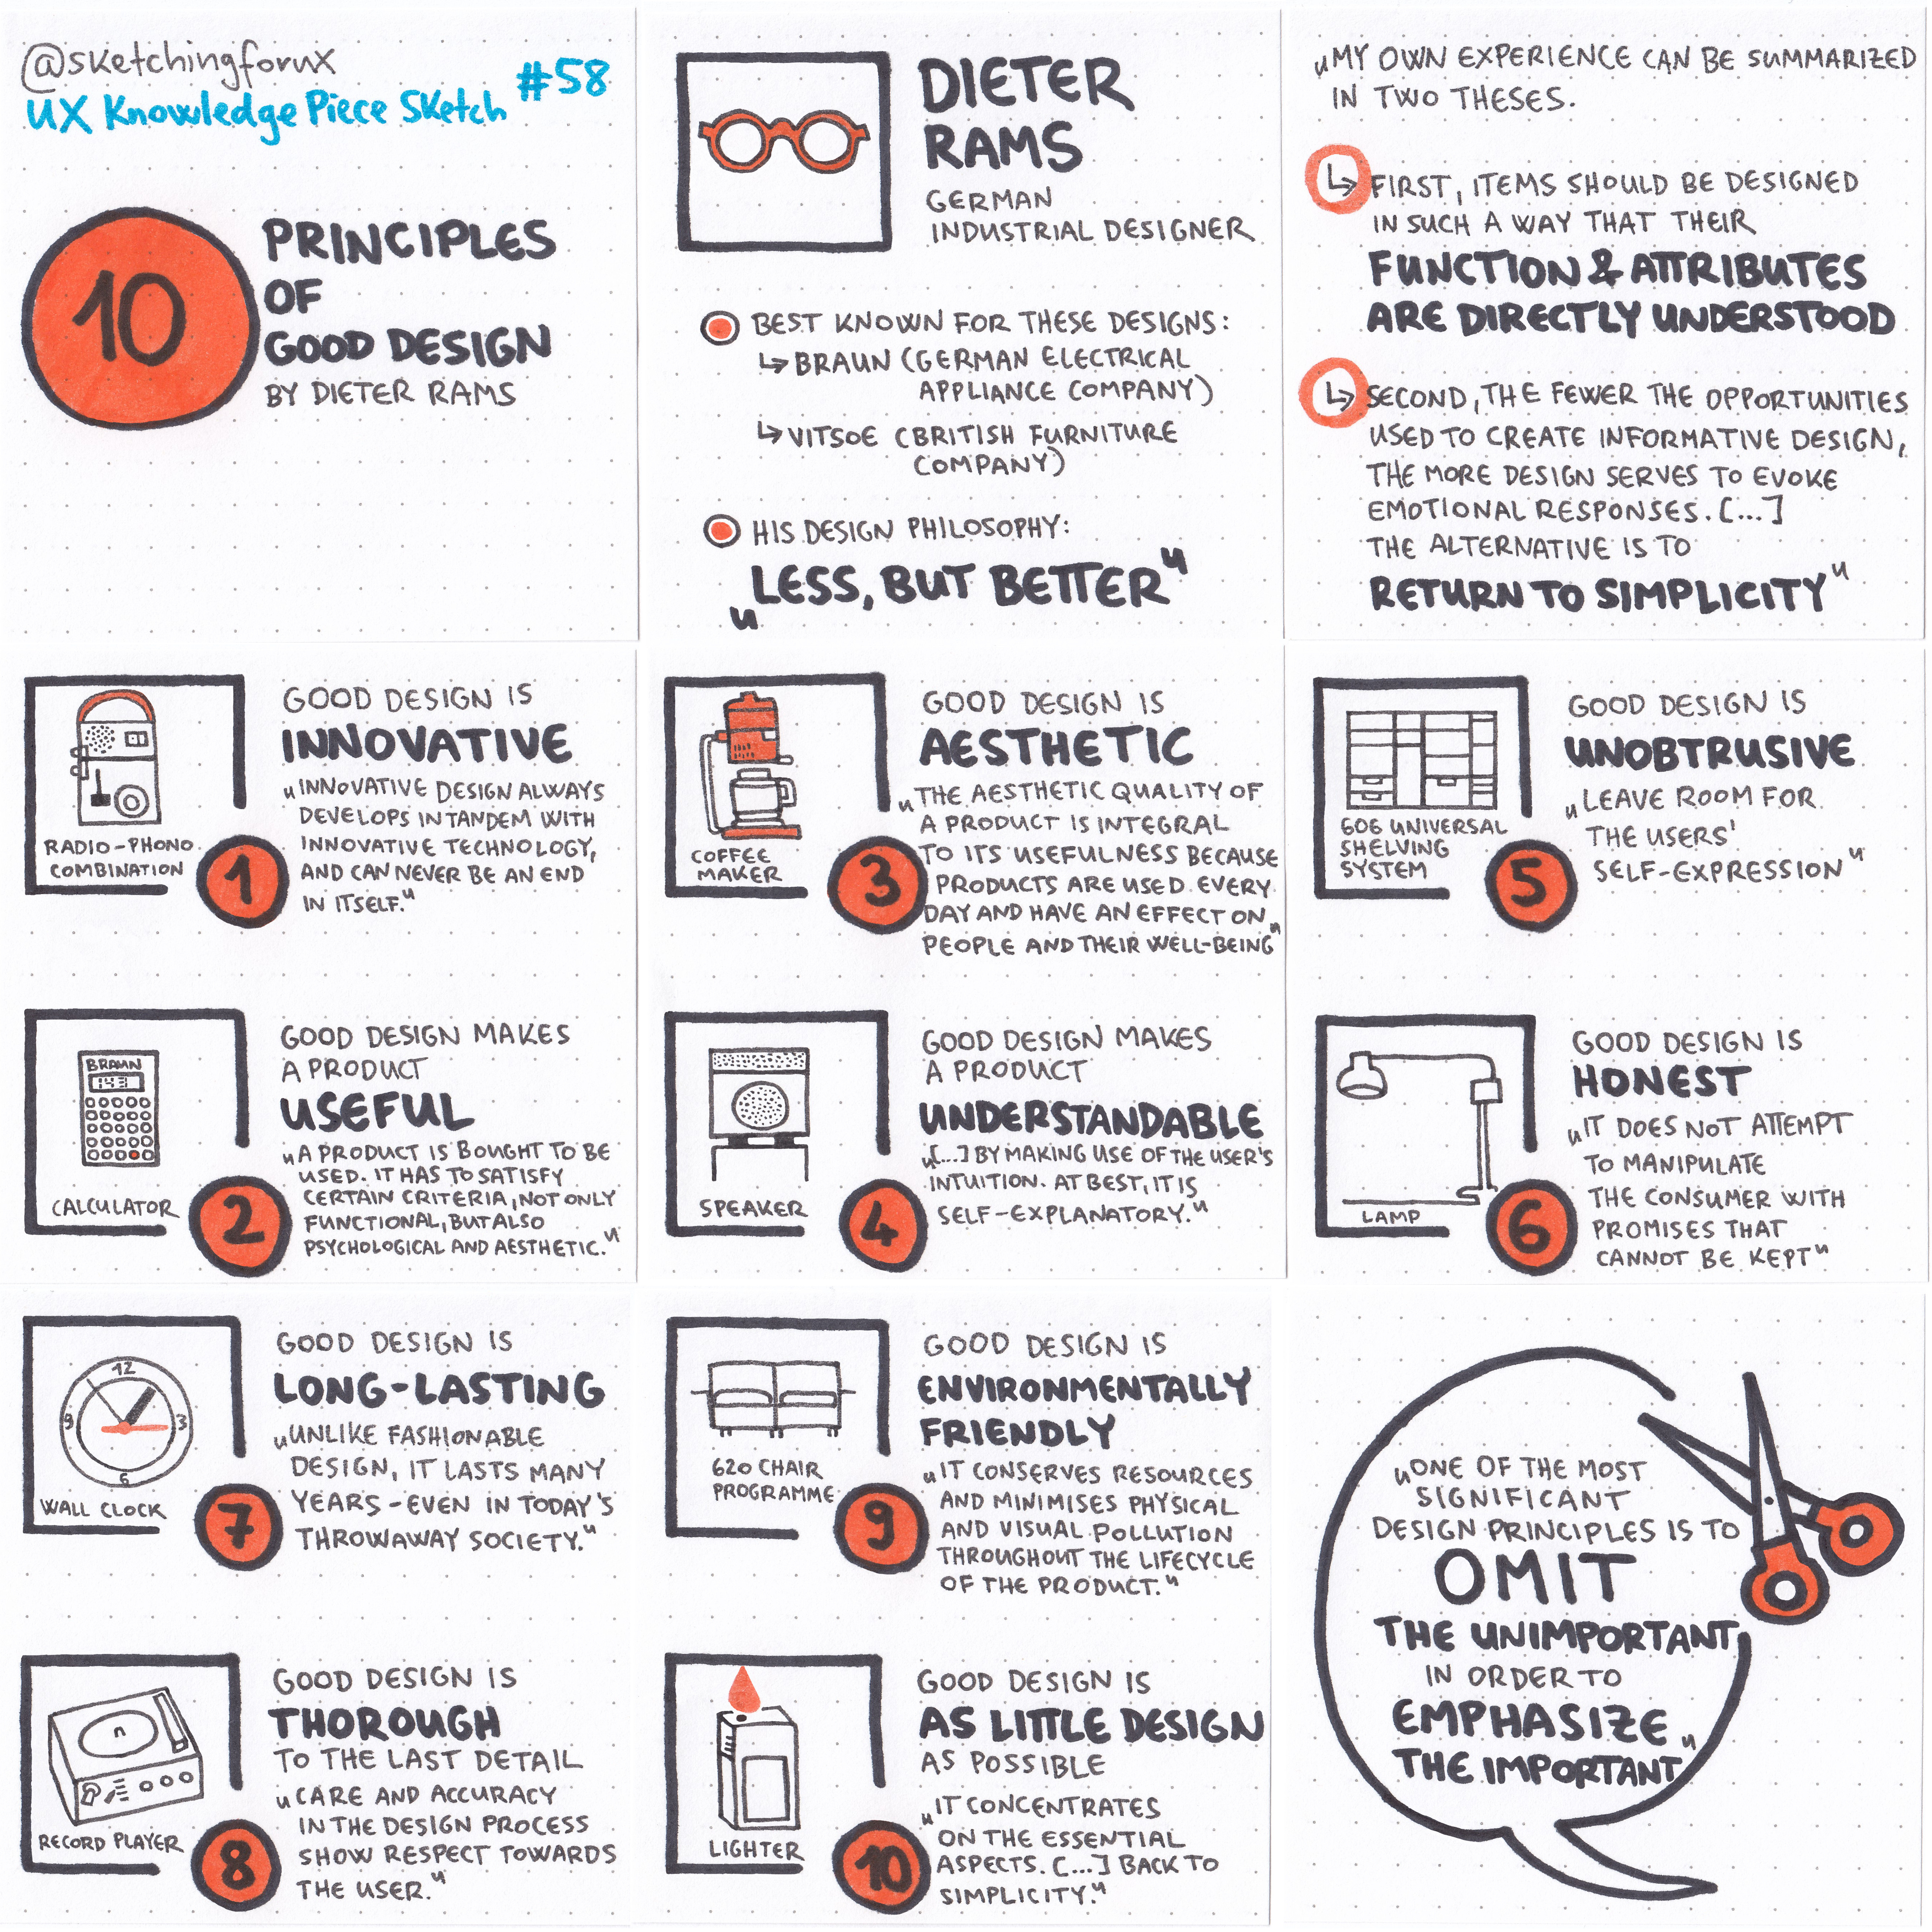 @sketchingforux
UX Knowledge Piece Sketch #58
10
PRINCIPLES
OF
GOOD DESIGN
BY DIETER RAMS
DIETER
RAMS
GERMAN
INDUSTRIAL DESIGNER
BEST KNOWN FOR THESE DESIGNS:
↳ BRAUN (GERMAN ELECTRICAL
APPLIANCE COMPANY)
↳ VITSOE (BRITISH FURNITURE
COMPANY)
HIS DESIGN PHILOSOPHY:
„LESS, BUT BETTER"
„MY OWN EXPERIENCE CAN BE SUMMARIZED
IN TWO THESES.
↳ FIRST, ITEMS SHOULD BE DESIGNED
IN SUCH A WAY THAT THEIR
FUNCTION & ATTRIBUTES
ARE DIRECTLY UNDERSTOOD
↳ SECOND, THE FEWER THE OPPORTUNITIES
USED TO CREATE INFORMATIVE DESIGN,
THE MORE DESIGN SERVES TO EVOKE
EMOTIONAL RESPONSES. [...]
THE ALTERNATIVE IS TO
RETURN TO SIMPLICITY"
RADIO-PHONO
COMBINATION
1
GOOD DESIGN IS
INNOVATIVE
„INNOVATIVE DESIGN ALWAYS
DEVELOPS IN TANDEM WITH
INNOVATIVE TECHNOLOGY,
AND CAN NEVER BE AN END
IN ITSELF."
BRAUN
143
CALCULATOR
2
GOOD DESIGN MAKES
A PRODUCT
USEFUL
„A PRODUCT IS BOUGHT TO BE
USED. IT HAS TO SATISFY
CERTAIN CRITERIA, NOT ONLY
FUNCTIONAL, BUT ALSO
PSYCHOLOGICAL AND AESTHETIC."
COFFEE
MAKER
3
GOOD DESIGN IS
AESTHETIC
„THE AESTHETIC QUALITY OF
A PRODUCT IS INTEGRAL
TO ITS USEFULNESS BECAUSE
PRODUCTS ARE USED EVERY
DAY AND HAVE AN EFFECT ON
PEOPLE AND THEIR WELL-BEING"
SPEAKER
4
GOOD DESIGN MAKES
A PRODUCT
UNDERSTANDABLE
„[...] BY MAKING USE OF THE USER'S
INTUITION. AT BEST, IT IS
SELF-EXPLANATORY."
606 UNIVERSAL
SHELVING
SYSTEM
5
GOOD DESIGN IS
UNOBTRUSIVE
„LEAVE ROOM FOR
THE USERS'
SELF-EXPRESSION"
LAMP
6
GOOD DESIGN IS
HONEST
„IT DOES NOT ATTEMPT
TO MANIPULATE
THE CONSUMER WITH
PROMISES THAT
CANNOT BE KEPT"
12
9 3
6
WALL CLOCK
7
GOOD DESIGN IS
LONG-LASTING
„UNLIKE FASHIONABLE
DESIGN, IT LASTS MANY
YEARS - EVEN IN TODAY'S
THROWAWAY SOCIETY."
RECORD PLAYER
8
GOOD DESIGN IS
THOROUGH
TO THE LAST DETAIL
„CARE AND ACCURACY
IN THE DESIGN PROCESS
SHOW RESPECT TOWARDS
THE USER."
620 CHAIR
PROGRAMME
9
GOOD DESIGN IS
ENVIRONMENTALLY
FRIENDLY
„IT CONSERVES RESOURCES
AND MINIMISES PHYSICAL
AND VISUAL POLLUTION
THROUGHOUT THE LIFECYCLE
OF THE PRODUCT."
LIGHTER
10
GOOD DESIGN IS
AS LITTLE DESIGN
AS POSSIBLE
„IT CONCENTRATES
ON THE ESSENTIAL
ASPECTS. [...] BACK TO
SIMPLICITY."
„ONE OF THE MOST
SIGNIFICANT
DESIGN PRINCIPLES IS TO
OMIT
THE UNIMPORTANT
IN ORDER TO
EMPHASIZE
THE IMPORTANT"